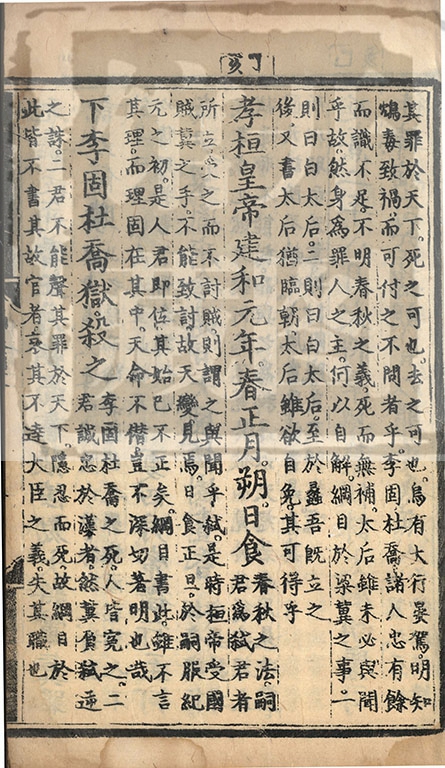 丁亥
其罪於天下。死之可也。去之可也。烏有大行晏駕明知
鴆毒致禍。而可付之不問者乎。李固杜喬諸人忠有餘
而識不足。不明春秋之義死而無補。太后雖未必與聞
乎故。然身爲罪人之主。何以自解。綱目於梁冀之事。一
則曰白太后。二則曰白太后。至於蠡吾旣立之
後又書太后猶臨朝太后雖欲自免。其可得乎
孝桓皇帝建和元年。春正月。朔。日食
春秋之法。嗣
君爲弑君者
所立爲之而不討賊則謂之與聞乎弑。是時桓帝受國
賊冀之手。不能致討故天變見焉。日食正旦。於嗣服紀
元之初。是人君即位其始已不正矣。綱目書此。雖不言
其理。而理固在其中。天命不僭豈不深切著明也哉
下李固杜喬獄。殺之
李固杜喬之死。人皆寃之。二
君誠忠於漢者。然冀負弑逆
之誅。二君不能聲其罪於天下。隱忍而死。故綱目於
此皆不書其故官者。其不達大臣之義。失其職也